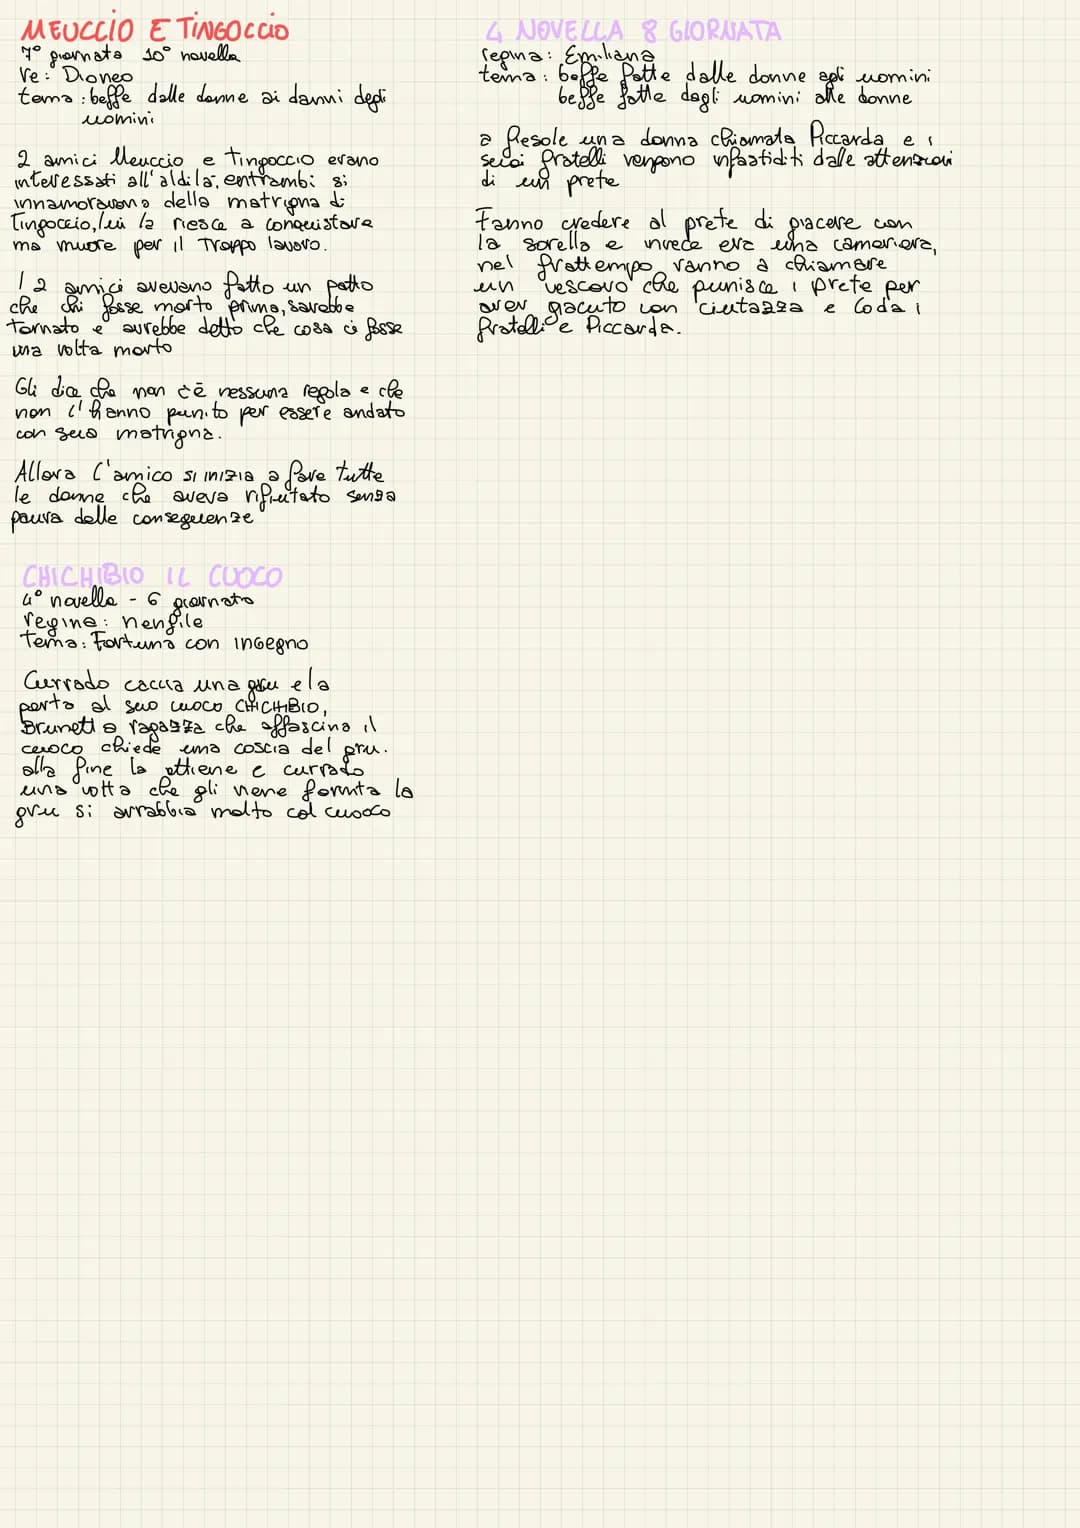 MEUCCIO E TINGOCCIO
7° giornata 10° novella
re: Dioneo
tema: beffe dalle donne ai danni degli
uomini
2 amici Meuccio e Tingoccio erano
interessati all'aldilà, entrambi si
innamorarono della matrigna di
Tingoccio, lui la riesce a conquistare
ma muore per il troppo lavoro.
I 2 amici avevano fatto un patto
che chi fosse morto prima, sarebbe
tornato e avrebbe detto che cosa ci fosse
una volta morto
Gli dice che non c'è nessuna regola e che
non l'hanno punito per essere andato
con sua matrigna.
Allora l'amico si inizia a fare tutte
le donne che aveva rifiutato senza
paura delle conseguenze
CHICHIBIO IL CUOCO
4° novella - 6 giornata
regina: nenfile
Tema: Fortuna con ingegno
Currado caccia una gru e la
porta al suo cuoco CHICHIBIO,
Brunetta ragazza che affascina il
cuoco chiede una coscia del gru.
alla fine la ottiene e currado
una volta che gli viene fornita la
gru si arrabbia molto col cuoco
4 NOVELLA 8 GIORNATA
regina: Emiliana
tema: beffe fatte dalle donne agli uomini
beffe fatte dagli uomini alle donne
a Fiesole una donna chiamata Piccarda e i
suoi fratelli vengono infastiditi dalle attenzioni
di un prete
Fanno credere al prete di giacere con
la sorella e invece era una cameriera,
nel frattempo vanno a chiamare
un vescovo che punisce i prete per
aver giacuto con ciutazza e loda i
fratelli e Piccarda.